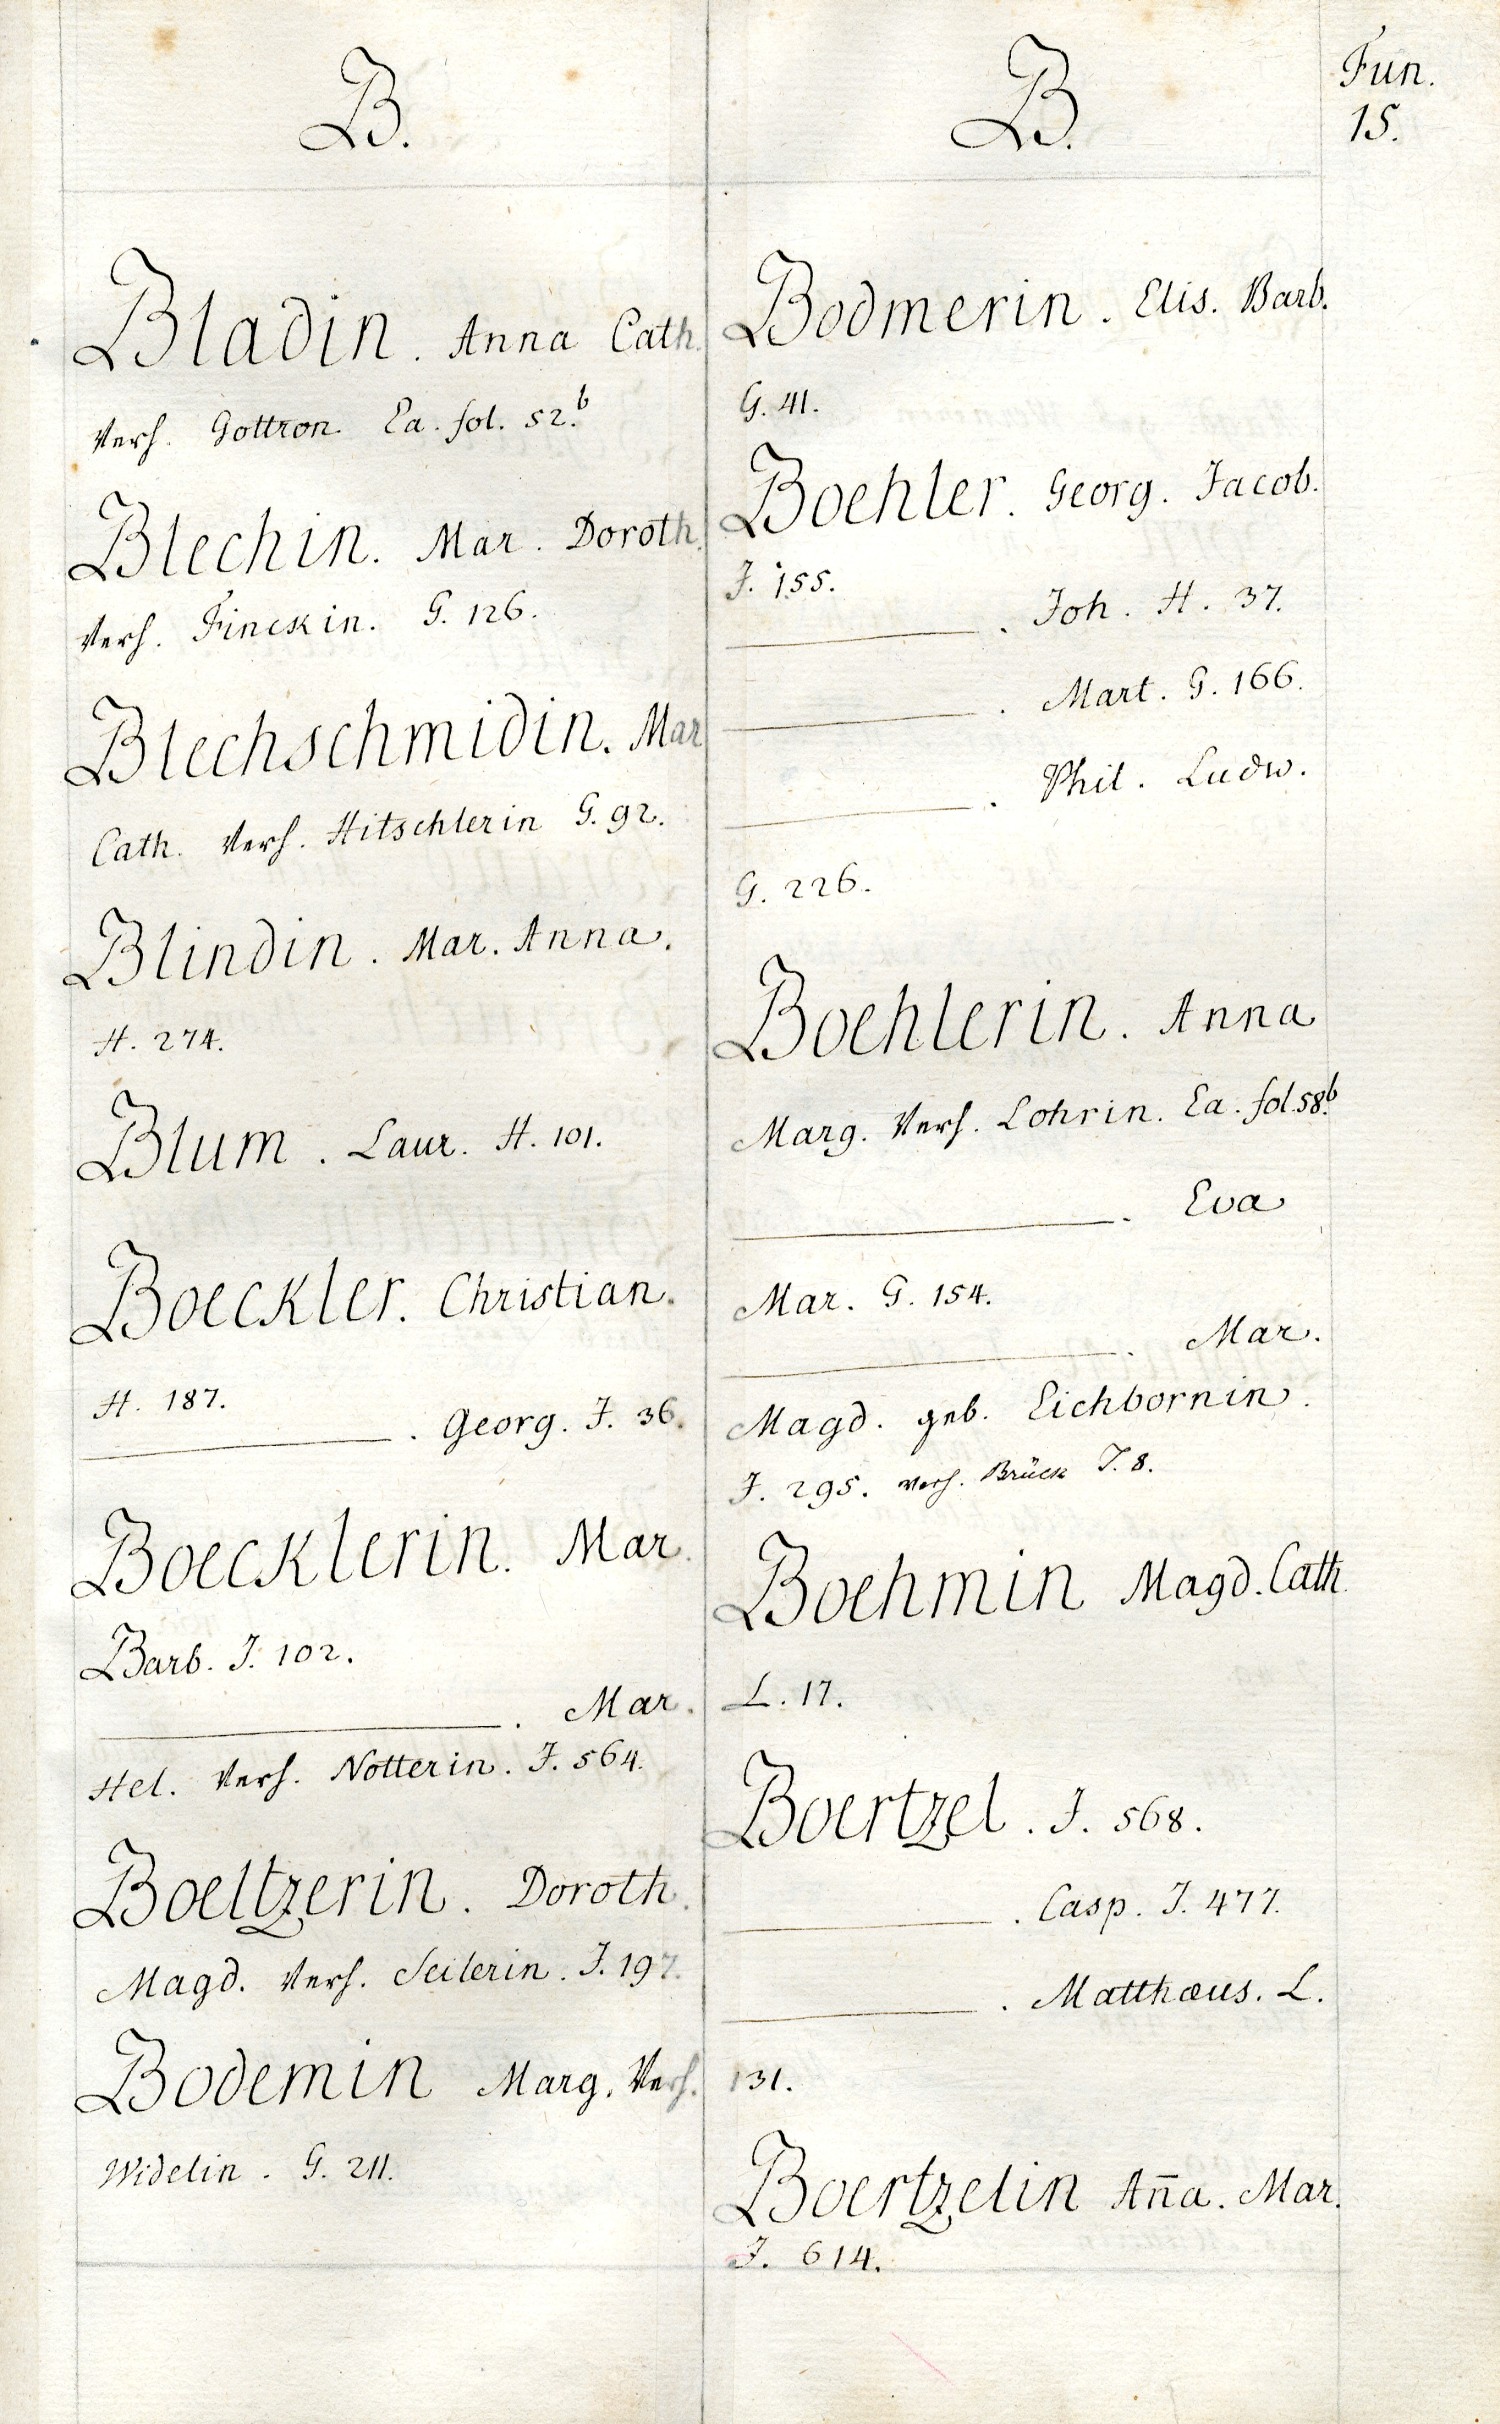 B.
Bladin. Anna Cath.
Verh. Gottron. Ea. fol. 52.b
Blechin. Mar. Doroth.
Verh. Finckin. G. 126.
Blechschmidin. Mar
Cath. Verh. Hitschlerin G. 92.
Blindin. Mar. Anna.
H. 274.
Blum. Laur. H. 101.
Boeckler. Christian.
H. 187.
———. Georg. J. 36.
Boecklerin. Mar.
Barb. J. 102.
———. Mar.
Hel. Verh. Notterin. J. 564.
Boeltzerin. Doroth.
Magd. Verh. Seilerin. J. 197.
Bodemin Marg. Verh.
Widelin. G. 211.
B.
Bodmerin. Elis. Barb.
G. 41.
Boehler. Georg. Jacob.
J. 155.
———. Joh. H. 37.
———. Mart. G. 166.
———. Phil. Ludw.
G. 226.
Boehlerin. Anna
Marg. Verh. Lohrin. Ea. fol. 58.b
———. Eva
Mar. G. 154.
———. Mar.
Magd. geb. Eichbornin.
J. 295. verh. Brück J. 8.
Boehmin Magd. Cath.
L. 17.
Boertzel. J. 568.
———. Casp. J. 477.
———. Matthæus. L.
131.
Boertzelin Aña. Mar.
J. 614.
Fun.
15.